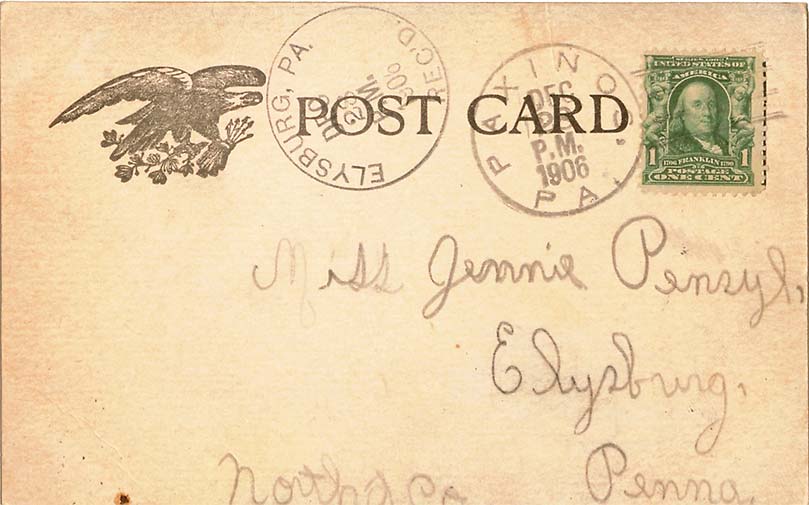 POST CARD
ELYSBURG, PA.
DEC
A.M.
REC'D.
PAXINOS
DEC
P.M.
1906
PA.
SERIES 1902
UNITED STATES OF
AMERICA
1 1706 FRANKLIN 1790 1
POSTAGE
ONE CENT
Miss Jennie Pensyl,
Elysburg,
North'd Co Penna,